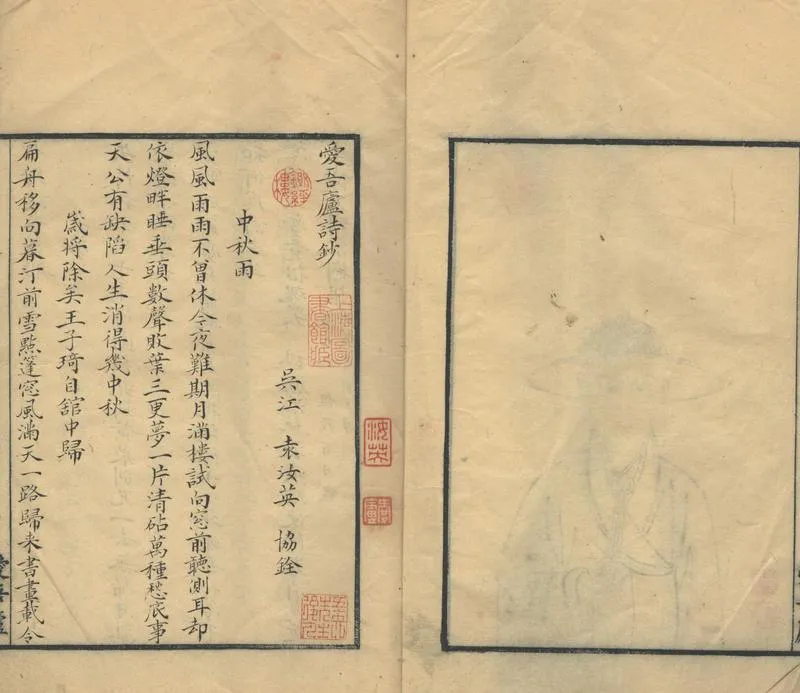 愛吾廬詩鈔
吳江 袁汝英 協銓
中秋雨
風風雨雨不曾休今夜難期月滿樓試向窓前聽側耳却
依燈畔睡垂頭數聲敗葉三更夢一片清砧萬種愁底事
天公有缺陷人生消得幾中秋
歲將除矣王子琦自舘中歸
扁舟移向暮汀前雪點篷窓風滿天一路歸來書畫載令
愛吾廬
汝英
上海圖書館藏